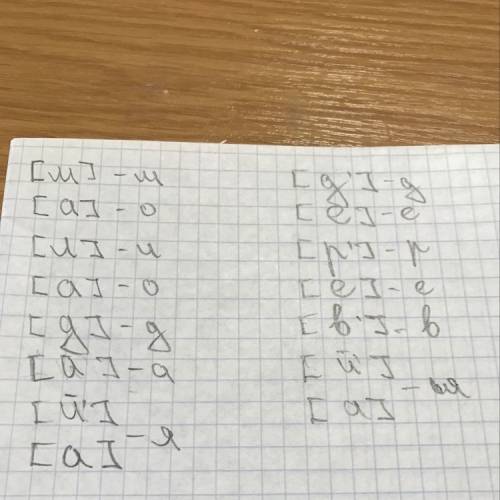 [м] - м
[а] - о
[л] - л
[а] - о
[д] - д
[а́] - а
[й']
[а] - я
[д'] - д
[е] - е
[р'] - р
[е] - е
[в'] - в
[й']
[а] - ья